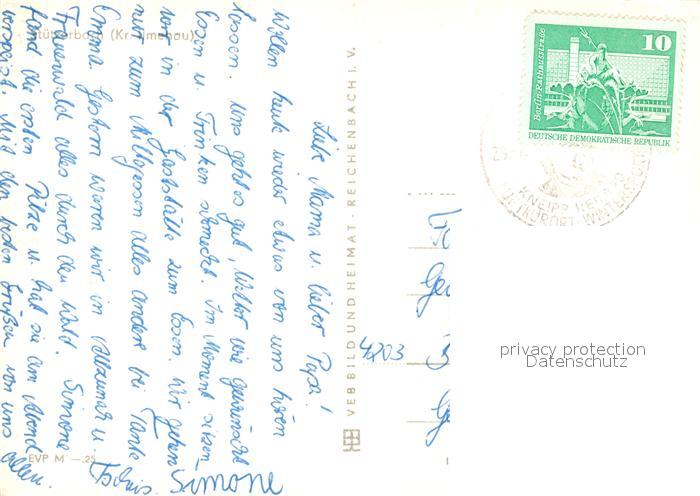 Stützerbach (Kr. Ilmenau)
Liebe Mama u. lieber Papa!
Wollen heute wieder etwas von uns hören
lassen. Uns geht es gut, Wetter wie gewünscht
Essen u. Trinken schmeckt. Im Moment sitzen
wir in der Gaststätte zum Essen. Wir gehen
nur zum Mittagessen alles andere bei Tante
Emma. Gestern waren wir in u.
Frauenwald alles durch den Wald. Simone
fand die ersten Pilze u. hat sie am Abend
verspeist. Mit den besten Grüßen von uns
allen.
Simone
EVP M —.25
VEB BILD UND HEIMAT · REICHENBACH I. V.
10
Berlin·Rathausstraße
DEUTSCHE DEMOKRATISCHE REPUBLIK
KNEIPP
privacy protection
Datenschutz